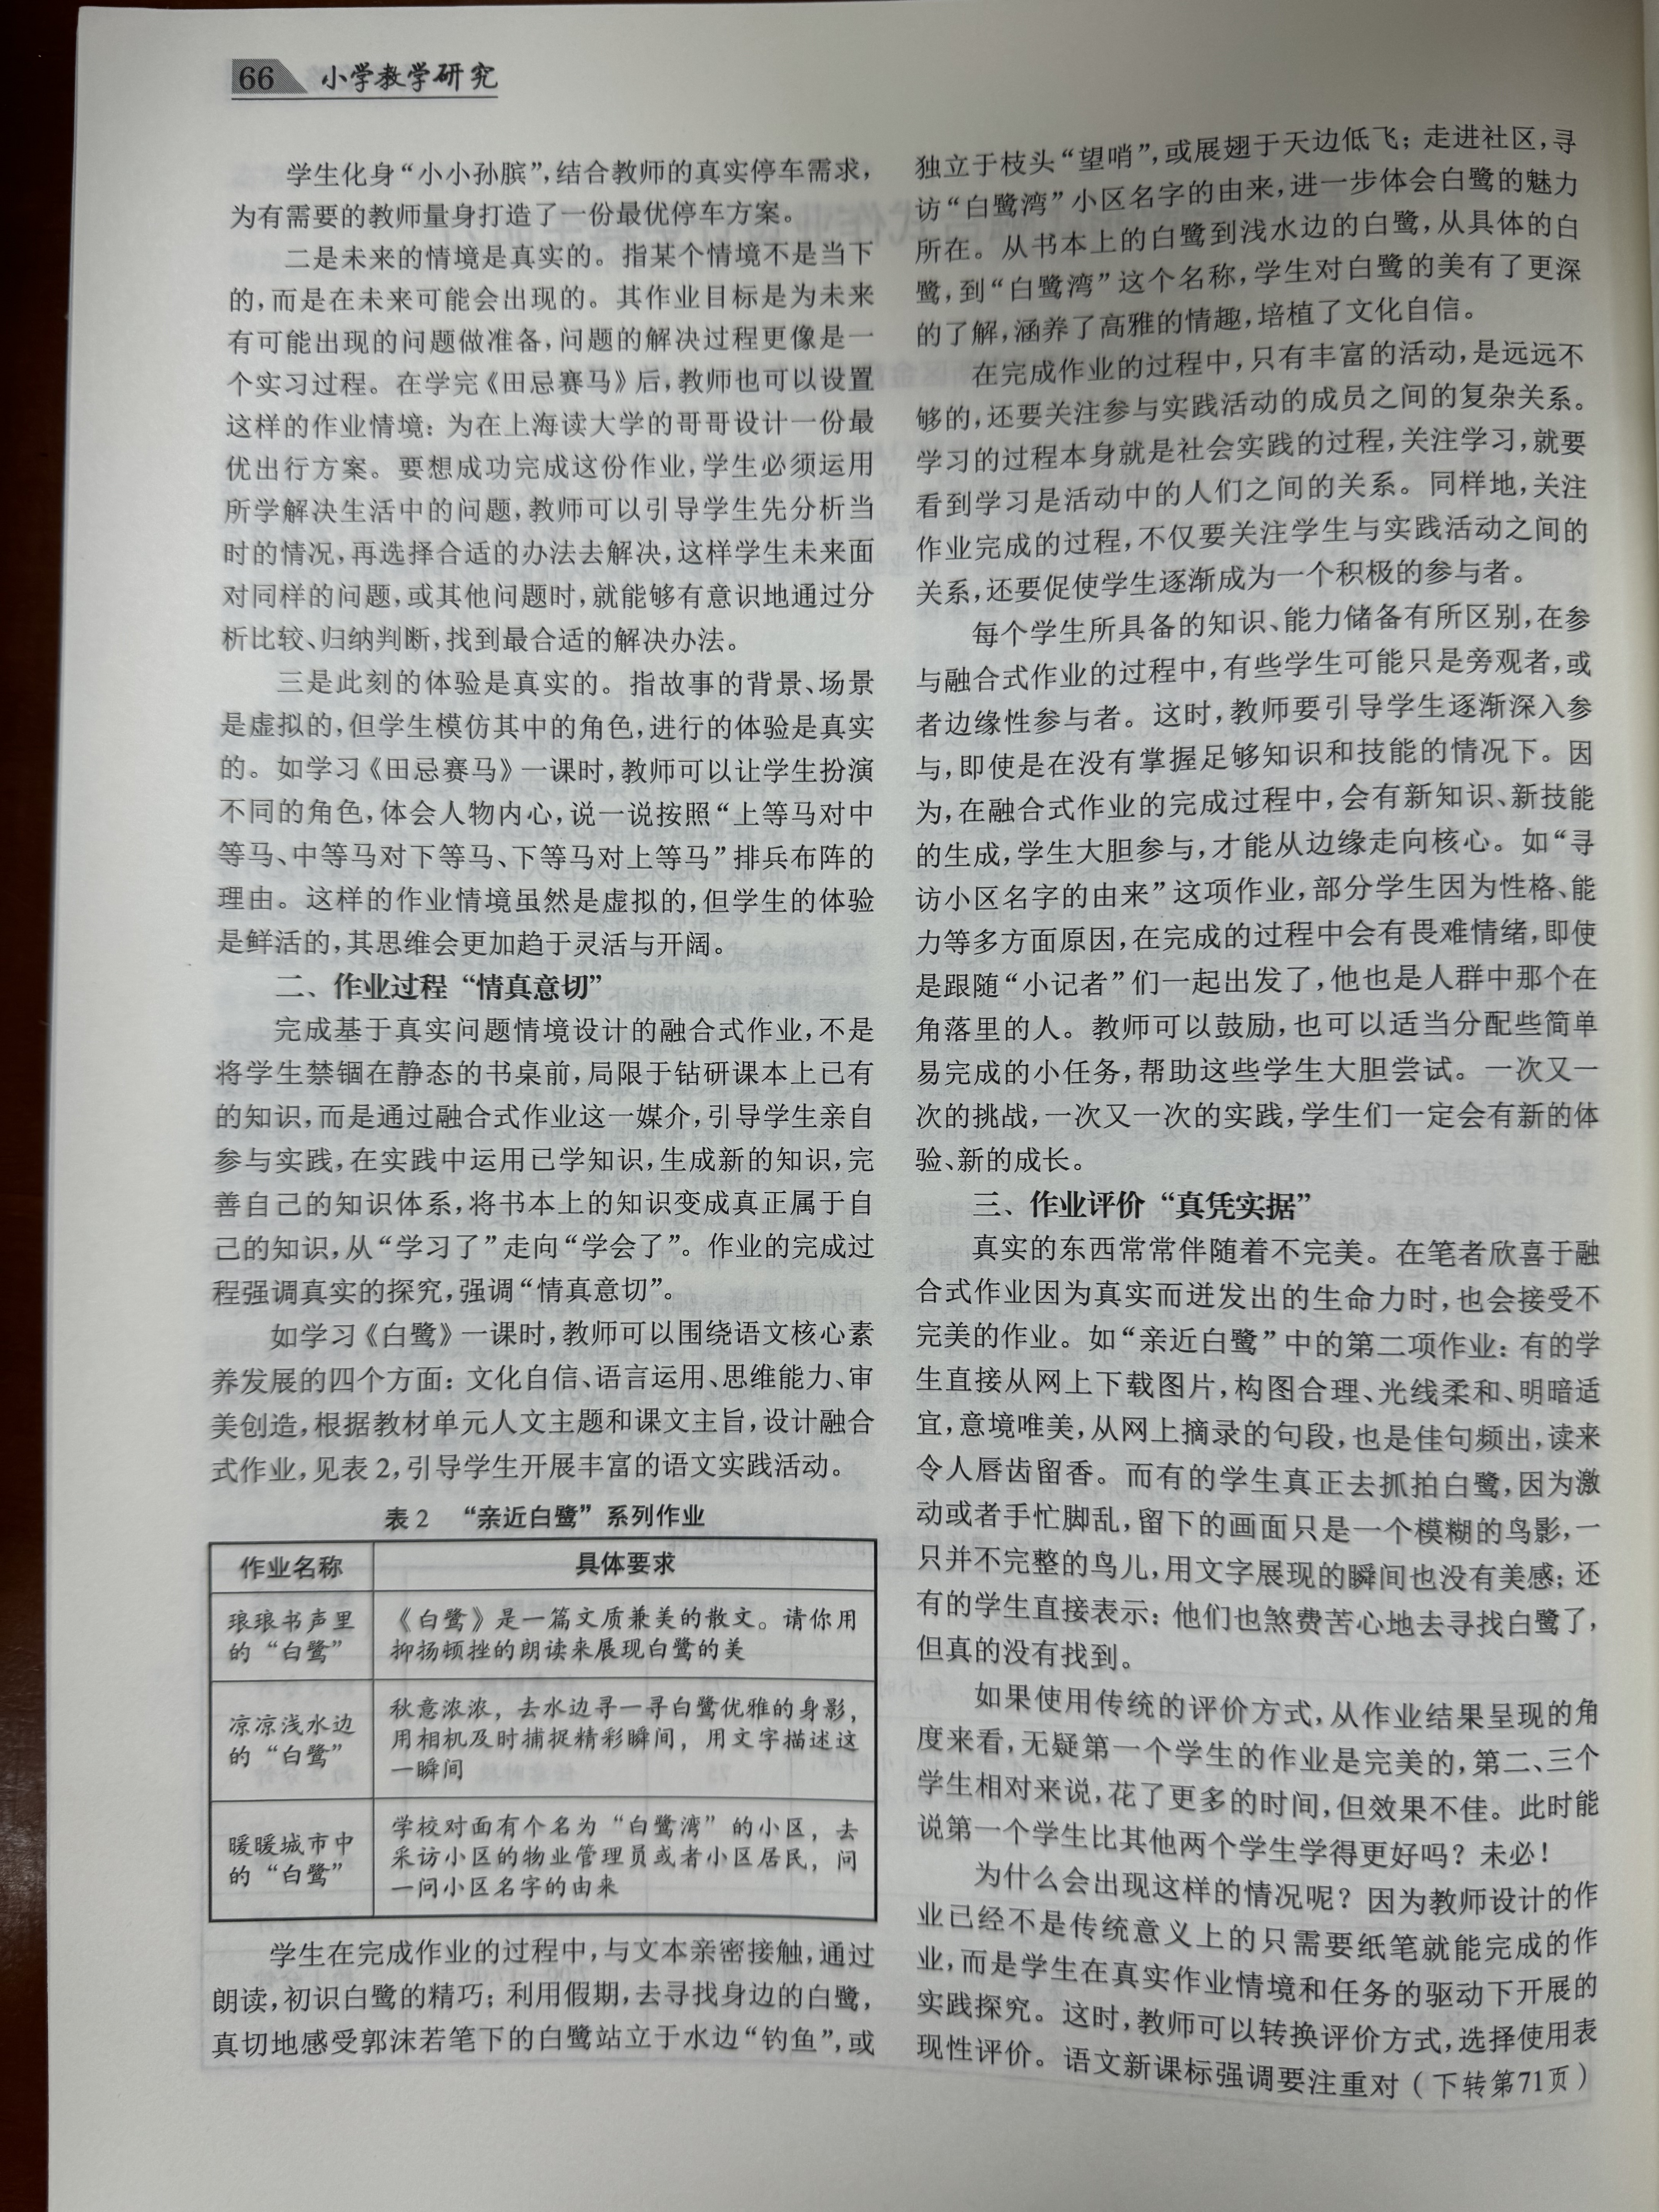 66 小学教学研究
学生化身“小小孙膑”,结合教师的真实停车需求,
为有需要的教师量身打造了一份最优停车方案。
二是未来的情境是真实的。指某个情境不是当下
的,而是在未来可能会出现的。其作业目标是为未来
有可能出现的问题做准备,问题的解决过程更像是一
个实习过程。在学完《田忌赛马》后,教师也可以设置
这样的作业情境:为在上海读大学的哥哥设计一份最
优出行方案。要想成功完成这份作业,学生必须运用
所学解决生活中的问题,教师可以引导学生先分析当
时的情况,再选择合适的办法去解决,这样学生未来面
对同样的问题,或其他问题时,就能够有意识地通过分
析比较、归纳判断,找到最合适的解决办法。
三是此刻的体验是真实的。指故事的背景、场景
是虚拟的,但学生模仿其中的角色,进行的体验是真实
的。如学习《田忌赛马》一课时,教师可以让学生扮演
不同的角色,体会人物内心,说一说按照“上等马对中
等马、中等马对下等马、下等马对上等马”排兵布阵的
理由。这样的作业情境虽然是虚拟的,但学生的体验
是鲜活的,其思维会更加趋于灵活与开阔。
二、作业过程“情真意切”
完成基于真实问题情境设计的融合式作业,不是
将学生禁锢在静态的书桌前,局限于钻研课本上已有
的知识,而是通过融合式作业这一媒介,引导学生亲自
参与实践,在实践中运用已学知识,生成新的知识,完
善自己的知识体系,将书本上的知识变成真正属于自
己的知识,从“学习了”走向“学会了”。作业的完成过
程强调真实的探究,强调“情真意切”。
如学习《白鹭》一课时,教师可以围绕语文核心素
养发展的四个方面:文化自信、语言运用、思维能力、审
美创造,根据教材单元人文主题和课文主旨,设计融合
式作业,见表2,引导学生开展丰富的语文实践活动。
表2 “亲近白鹭”系列作业
作业名称 具体要求
琅琅书声里
的“白鹭”
《白鹭》是一篇文质兼美的散文。请你用
抑扬顿挫的朗读来展现白鹭的美
凉凉浅水边
的“白鹭”
秋意浓浓,去水边寻一寻白鹭优雅的身影,
用相机及时捕捉精彩瞬间,用文字描述这
一瞬间
暖暖城市中
的“白鹭”
学校对面有个名为“白鹭湾”的小区,去
采访小区的物业管理员或者小区居民,问
一问小区名字的由来
学生在完成作业的过程中,与文本亲密接触,通过
朗读,初识白鹭的精巧;利用假期,去寻找身边的白鹭,
真切地感受郭沫若笔下的白鹭站立于水边“钓鱼”,或
独立于枝头“望哨”,或展翅于天边低飞;走进社区,寻
访“白鹭湾”小区名字的由来,进一步体会白鹭的魅力
所在。从书本上的白鹭到浅水边的白鹭,从具体的白
鹭,到“白鹭湾”这个名称,学生对白鹭的美有了更深
的了解,涵养了高雅的情趣,培植了文化自信。
在完成作业的过程中,只有丰富的活动,是远远不
够的,还要关注参与实践活动的成员之间的复杂关系。
学习的过程本身就是社会实践的过程,关注学习,就要
看到学习是活动中的人们之间的关系。同样地,关注
作业完成的过程,不仅要关注学生与实践活动之间的
关系,还要促使学生逐渐成为一个积极的参与者。
每个学生所具备的知识、能力储备有所区别,在参
与融合式作业的过程中,有些学生可能只是旁观者,或
者边缘性参与者。这时,教师要引导学生逐渐深入参
与,即使是在没有掌握足够知识和技能的情况下。因
为,在融合式作业的完成过程中,会有新知识、新技能
的生成,学生大胆参与,才能从边缘走向核心。如“寻
访小区名字的由来”这项作业,部分学生因为性格、能
力等多方面原因,在完成的过程中会有畏难情绪,即使
是跟随“小记者”们一起出发了,他也是人群中那个在
角落里的人。教师可以鼓励,也可以适当分配些简单
易完成的小任务,帮助这些学生大胆尝试。一次又一
次的挑战,一次又一次的实践,学生们一定会有新的体
验、新的成长。
三、作业评价“真凭实据”
真实的东西常常伴随着不完美。在笔者欣喜于融
合式作业因为真实而迸发出的生命力时,也会接受不
完美的作业。如“亲近白鹭”中的第二项作业:有的学
生直接从网上下载图片,构图合理、光线柔和、明暗适
宜,意境唯美,从网上摘录的句段,也是佳句频出,读来
令人唇齿留香。而有的学生真正去抓拍白鹭,因为激
动或者手忙脚乱,留下的画面只是一个模糊的鸟影,一
只并不完整的鸟儿,用文字展现的瞬间也没有美感;还
有的学生直接表示:他们也煞费苦心地去寻找白鹭了,
但真的没有找到。
如果使用传统的评价方式,从作业结果呈现的角
度来看,无疑第一个学生的作业是完美的,第二、三个
学生相对来说,花了更多的时间,但效果不佳。此时能
说第一个学生比其他两个学生学得更好吗?未必!
为什么会出现这样的情况呢?因为教师设计的作
业已经不是传统意义上的只需要纸笔就能完成的作
业,而是学生在真实作业情境和任务的驱动下开展的
实践探究。这时,教师可以转换评价方式,选择使用表
现性评价。语文新课标强调要注重对(下转第71页)